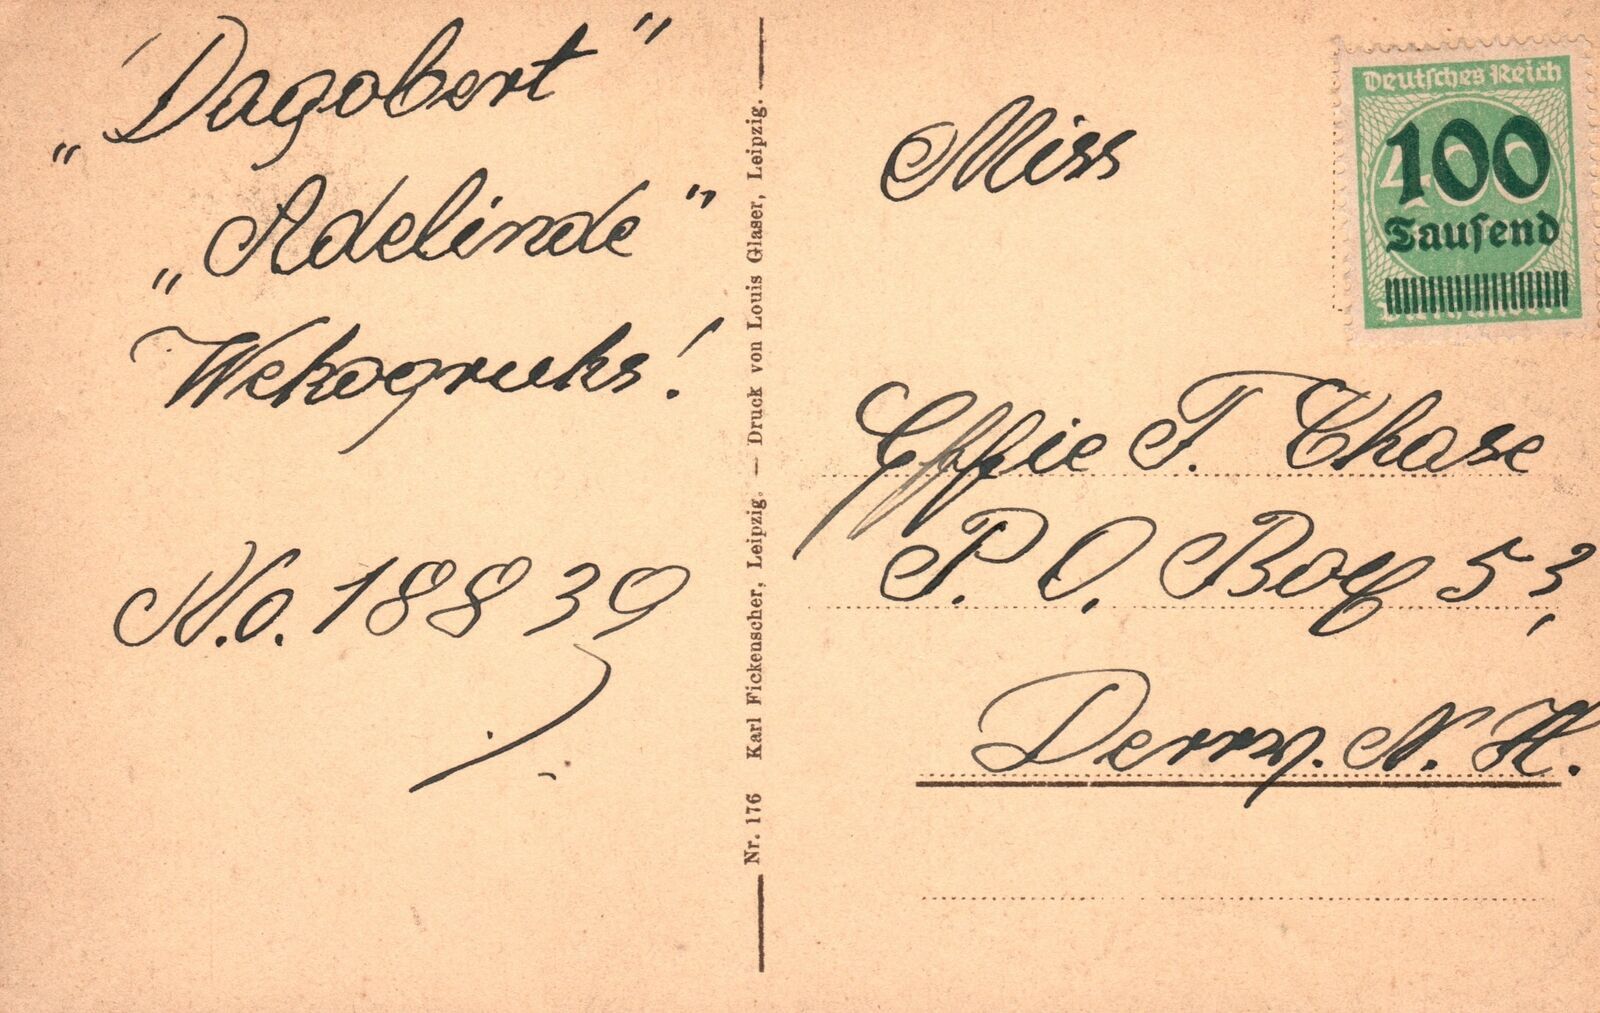 „Dagobert"
„Adelinde"
Wekogruks!
No. 18839
Nr. 176 Karl Fickenscher, Leipzig. — Druck von Louis Glaser, Leipzig.
Deutsches Reich
400
100
Tausend
Miss
Effie T. Chase
P. O. Box 53,
Derry. N. H.